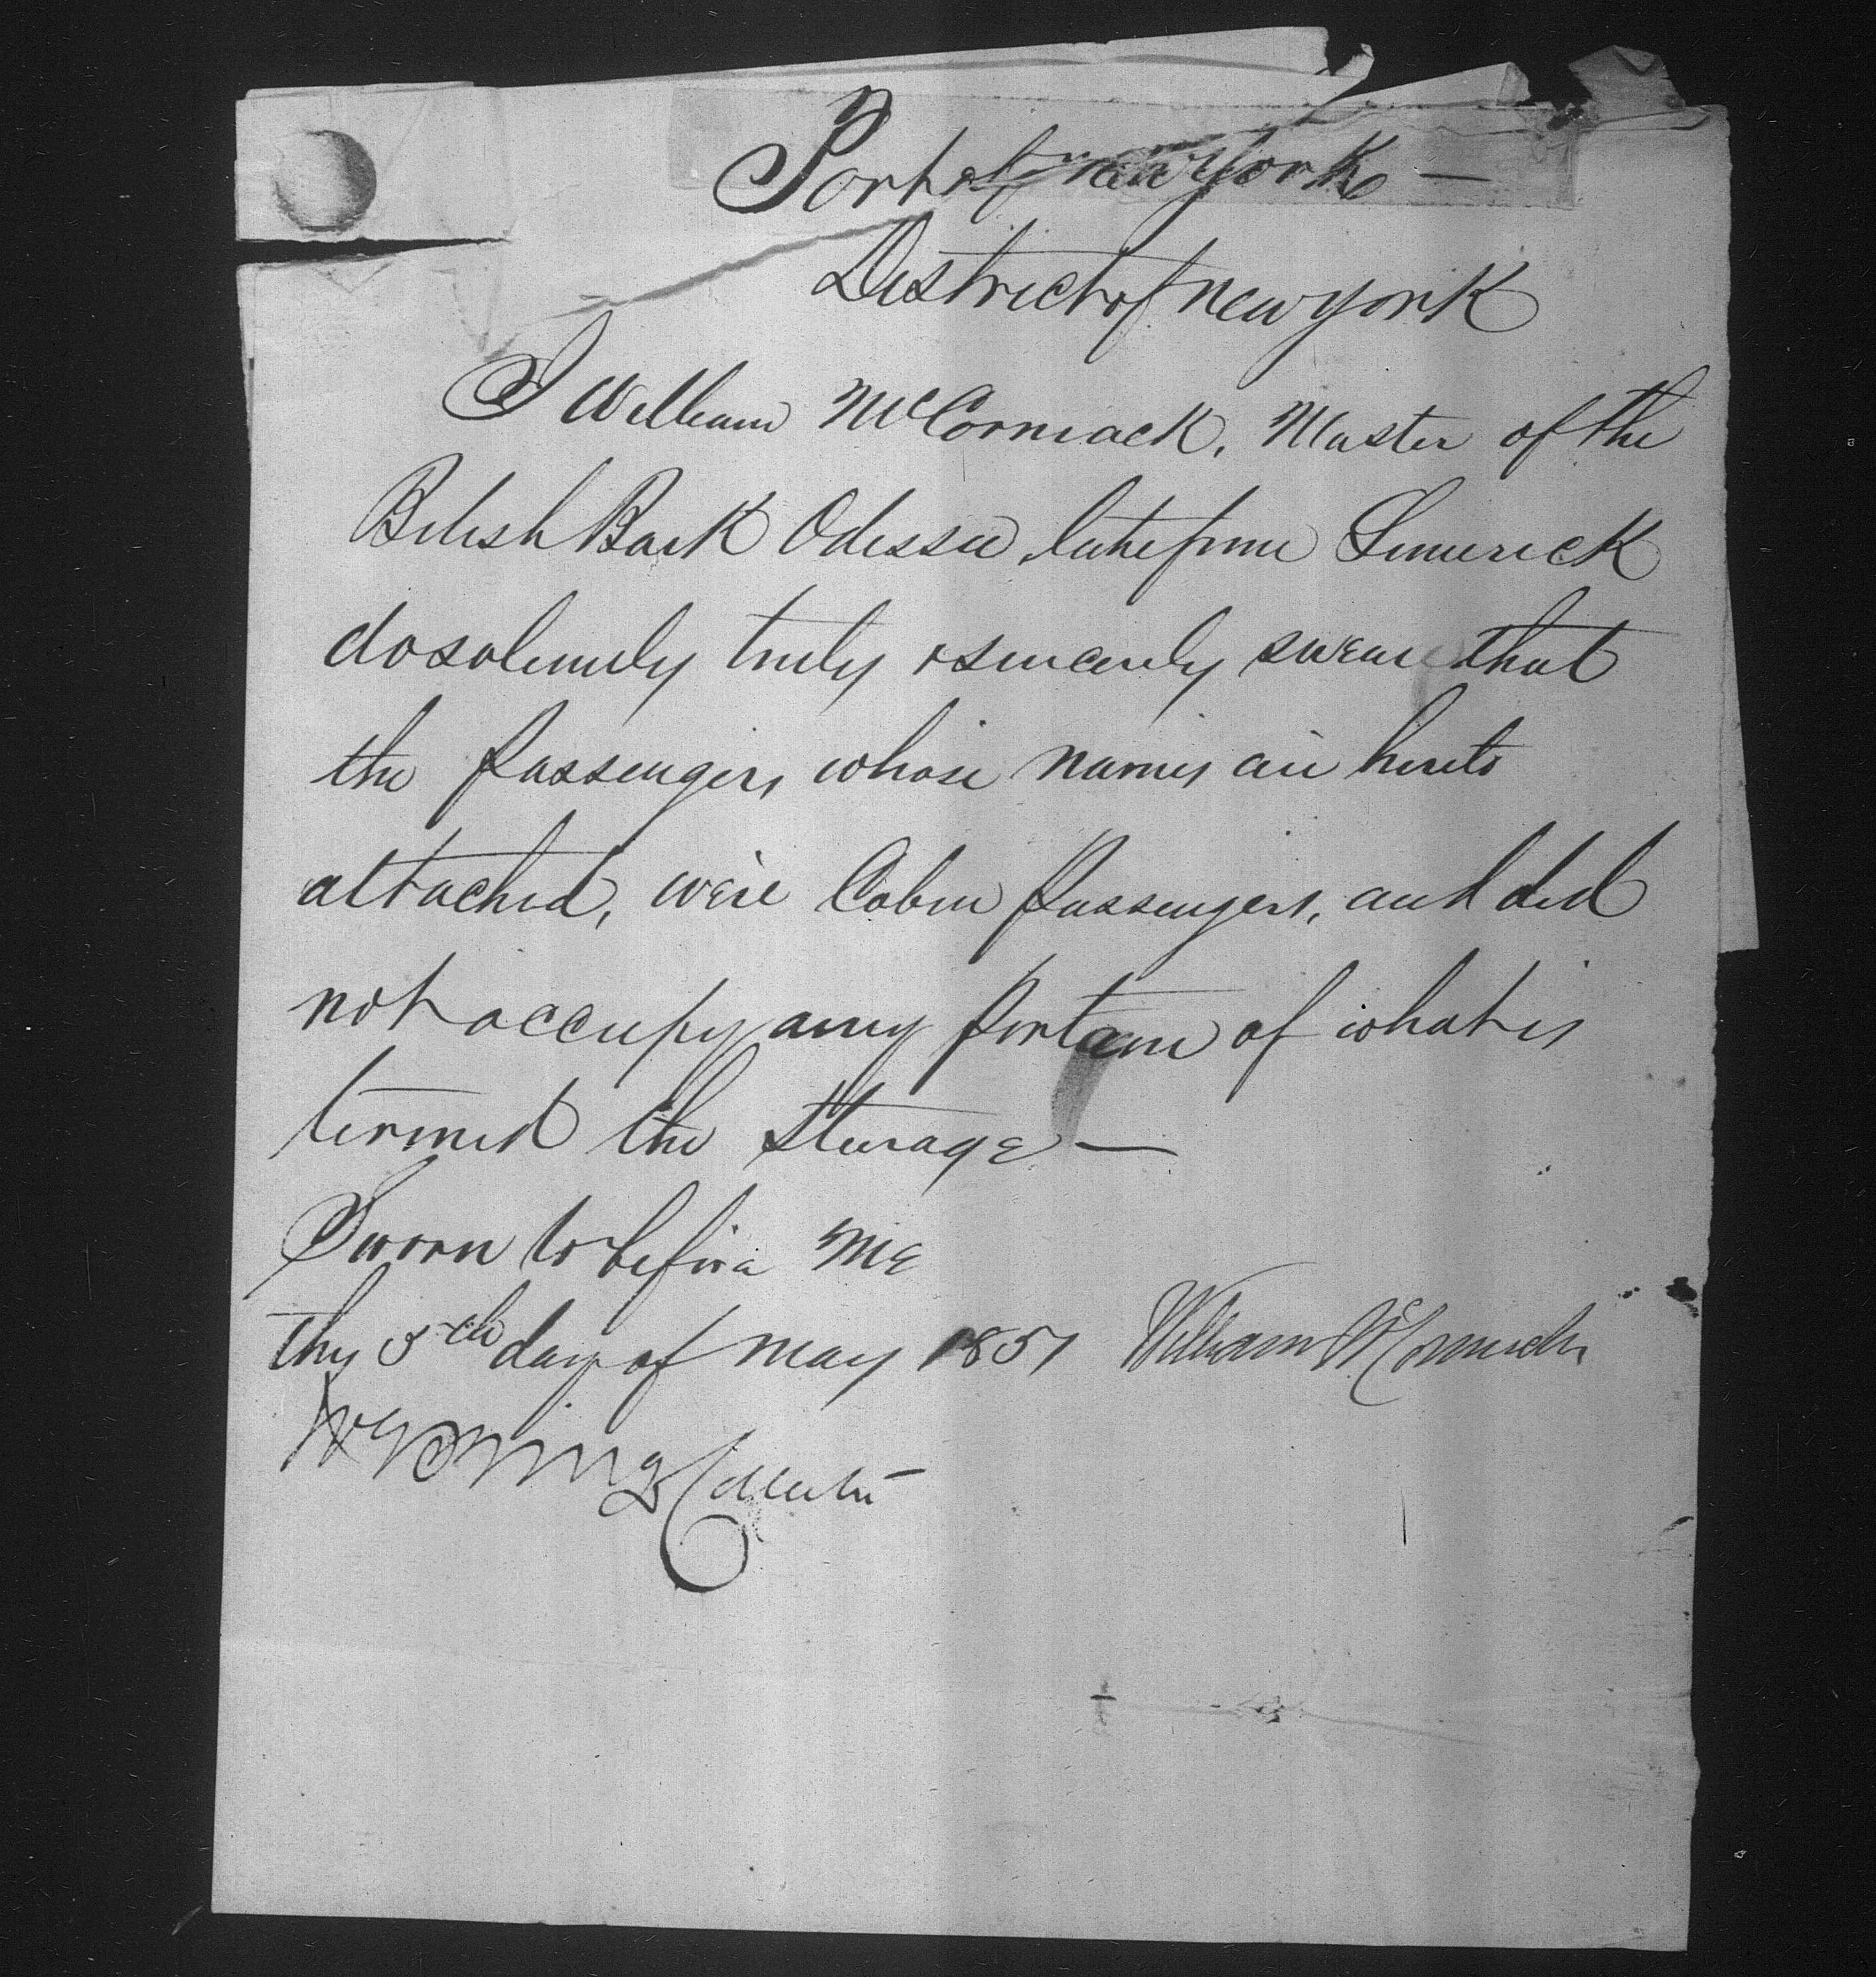 Port of New York —
District of New York
I William McCormack, Master of the
Bitish Bark Odessa, late from Limerick
do solemnly truly & sincerely swear that
the Passengers whose names are hereto
attached, were Cabin Passengers, and did
not occupy any portion of what is
termed the Steerage —
Sworn to before me
this 5th day of May 1851 William McCormack
Collector